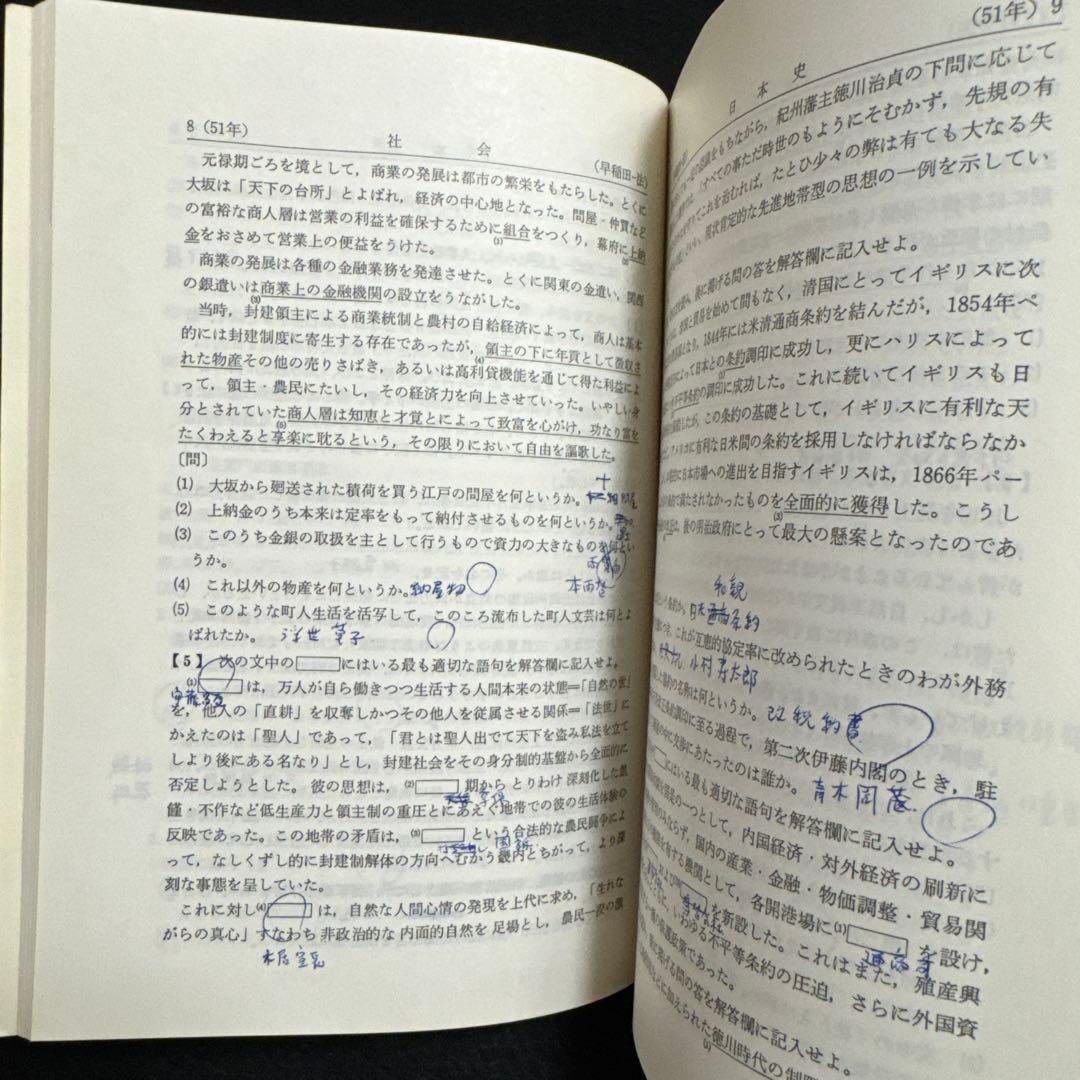 8 (51年)
社会
(早稲田-法)
元禄期ごろを境として，商業の発展は都市の繁栄をもたらした。とくに
大坂は「天下の台所」とよばれ，経済の中心地となった。問屋・仲買など
の富裕な商人層は営業の利益を確保するために組合をつくり，幕府に上納
(1)
金をおさめて営業上の便益をうけた。
商業の発展は各種の金融業務を発達させた。とくに関東の金遣い，関西
の銀遣いは商業上の金融機関の設立をうながした。
(3)
当時，封建領主による商業統制と農村の自給経済によって，商人は基本
的には封建制度に寄生する存在であったが，領主の下に年貢として徴収さ
(4)
れた物産その他の売りさばき，あるいは高利貸機能を通じて得た利益によ
って，領主・農民にたいし，その経済力を向上させていった。いやしい身
分とされていた商人層は知恵と才覚とによって致富を心がけ，功なり富を
(5)
たくわえると享楽に耽るという，その限りにおいて自由を謳歌した。
〔問〕
(1) 大坂から廻送された積荷を買う江戸の問屋を何というか。
十
問屋
(2) 上納金のうち本来は定率をもって納付させるものを何というか。
(3) このうち金銀の取扱を主として行うもので資力の大きなものを何とい
うか。
本両替
(4) これ以外の物産を何というか。 納屋物
(5) このような町人生活を活写して，このころ流布した町人文芸は何とよ
ばれたか。 浮世草子
【5】 次の文中の□にはいる最も適切な語句を解答欄に記入せよ。
(1)□は，万人が自ら働きつつ生活する人間本来の状態＝「自然の世」
安藤昌益
を，他人の「直耕」を収奪しかつその他人を従属させる関係＝「法世」に
かえたのは「聖人」であって，「君とは聖人出でて天下を盗み私法を立て
しより後にある名なり」とし，封建社会をその身分制的基盤から全面的に
否定しようとした。彼の思想は，(2)□期から とりわけ 深刻化した飢
享保
饉・不作など低生産力と領主制の重圧とにあえぐ地帯での彼の生活体験の
反映であった。この地帯の矛盾は，(3)□という合法的な農民闘争によ
国訴
って，なしくずし的に封建制解体の方向へむかう畿内とちがって，より深
刻な事態を呈していた。
これに対し(4)□は，自然な人間心情の発現を上代に求め，「生れな
がらの真心」すなわち 非政治的な 内面的自然を 足場とし，農民一揆の激
本居宣長
(51年) 9
日本史
をもちながら，紀州藩主徳川治貞の下問に応じて
「すべての事ただ時世のもようにそむかず，先規の有
これを治むれば，たとひ少々の弊は有ても大なる失
現状肯定的な先進地帯型の思想の一例を示してい
後に掲げる問の答を解答欄に記入せよ。
貿易を始めて間もなく，清国にとってイギリスに次
1844年には米清通商条約を結んだが，1854年ペ
によって日本との条約調印に成功し，更にハリスによって
条約の調印に成功した。これに続いてイギリスも日
が，この条約の基礎として，イギリスに有利な天
に有利な日米間の条約を採用しなければならなか
日本市場への進出を目指すイギリスは，1866年パー
満たされなかったものを全面的に獲得した。こうし
(3)
後の明治政府にとって最大の懸案となったのであ
和親
日米通商条約
これが互恵的協定率に改められたときのわが外務
小村寿太郎
の名称は何というか。 改税約書
条約調印に至る過程で，第二次伊藤内閣のとき，駐
交渉にあたったのは誰か。 青木周蔵
□にはいる最も適切な語句を解答欄に記入せよ。
の一つとして，内国経済・対外経済の刷新に
のみならず，国内の産業・金融・物価調整・貿易関
を有する機関として，各開港場に(1)□を設け，
通商司
および□を新設した。これはまた，殖産興
いわゆる不平等条約の圧迫，さらに外国資
政策であった。
に掲げる問の答を解答欄に記入せよ。
に加えられた徳川時代の制
(1)